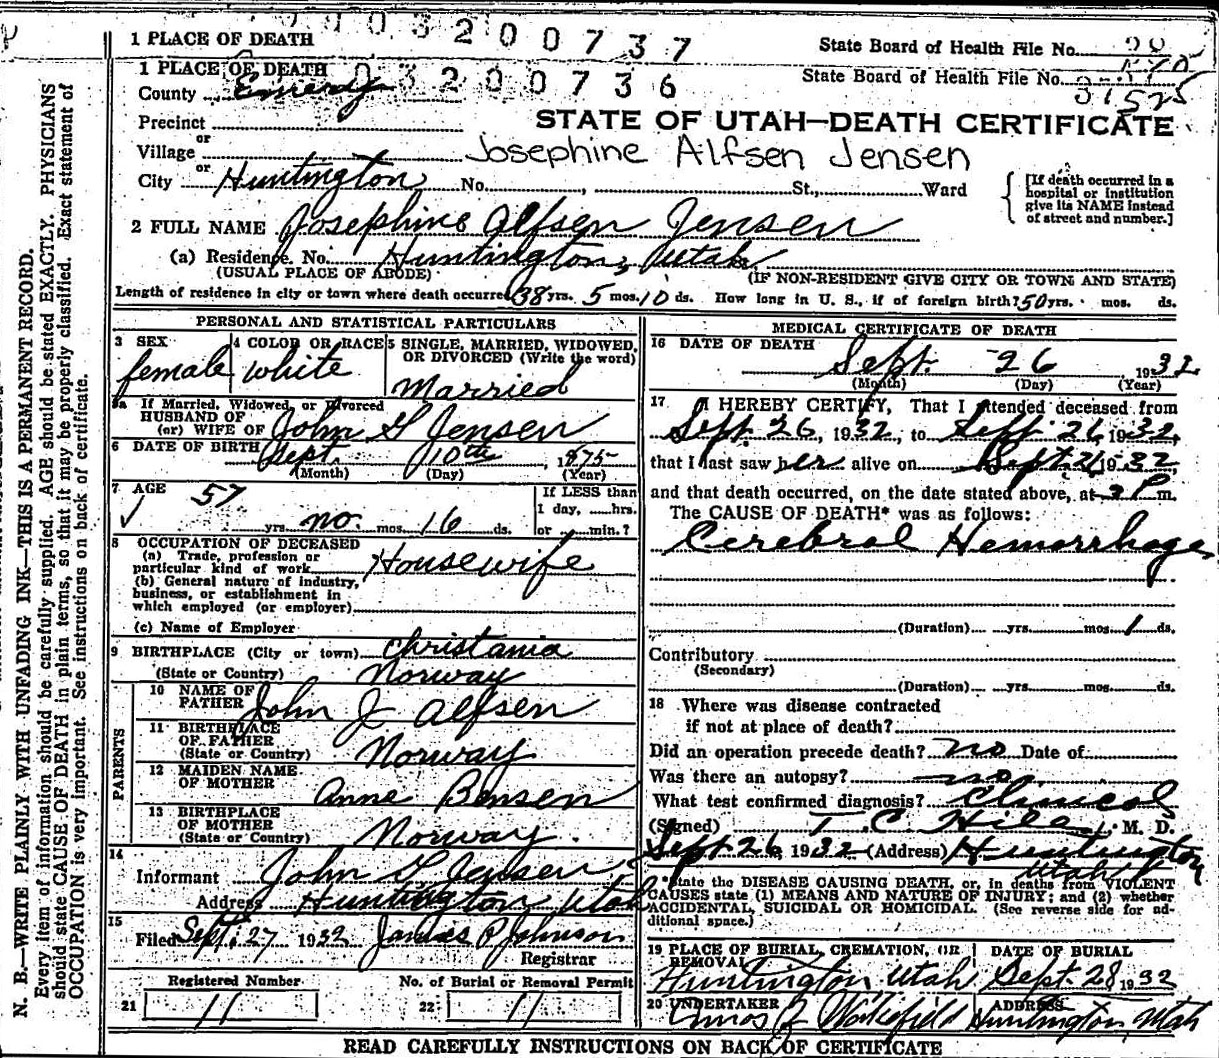 0 0 3 2 0 0 7 3 7
1 PLACE OF DEATH
State Board of Health File No.
1 PLACE OF DEATH
0 3 2 0 0 7 3 6
State Board of Health File No.
County Emery
STATE OF UTAH—DEATH CERTIFICATE
Precinct
or
Village
Josephine Alfsen Jensen
or
City Huntington No. , St., Ward
[If death occurred in a
hospital or institution
give its NAME instead
of street and number.]
2 FULL NAME Josephine Alfsen Jensen
(a) Residence. No. Huntington, Utah
(USUAL PLACE OF ABODE) (IF NON-RESIDENT GIVE CITY OR TOWN AND STATE)
Length of residence in city or town where death occurred 38 yrs. 5 mos. 10 ds. How long in U. S., if of foreign birth? 50 yrs. mos. ds.
PERSONAL AND STATISTICAL PARTICULARS
3 SEX 4 COLOR OR RACE 5 SINGLE, MARRIED, WIDOWED,
OR DIVORCED (Write the word)
female white Married
5a If Married, Widowed, or Divorced
HUSBAND OF
(or) WIFE OF John G Jensen
6 DATE OF BIRTH Sept. 10th, 1875
(Month) (Day) (Year)
7 AGE 57 If LESS than
1 day, hrs.
yrs. no. mos. 16 ds. or min.?
8 OCCUPATION OF DECEASED
(a) Trade, profession or
particular kind of work Housewife
(b) General nature of industry,
business, or establishment in
which employed (or employer)
(c) Name of Employer
9 BIRTHPLACE (City or town) Christania
(State or Country) Norway
PARENTS
10 NAME OF
FATHER John J Alfsen
11 BIRTHPLACE
OF FATHER
(State or Country) Norway
12 MAIDEN NAME
OF MOTHER Anne Bensen
13 BIRTHPLACE
OF MOTHER
(State or Country) Norway.
14
Informant John G Jensen
Address Huntington Utah
15
Filed Sept. 27 1932 James P Johnson
Registrar
Registered Number No. of Burial or Removal Permit
21 11 22 11
MEDICAL CERTIFICATE OF DEATH
16 DATE OF DEATH
Sept. 26, 1932
(Month) (Day) (Year)
17 I HEREBY CERTIFY, That I attended deceased from
Sept. 26, 1932, to Sept 26, 1932,
that I last saw her alive on Sept. 26 1932
and that death occurred, on the date stated above, at P m.
The CAUSE OF DEATH* was as follows:
Cerebral Hemorrhage
(Duration) yrs. mos. 1 ds.
Contributory
(Secondary)
(Duration) yrs. mos. ds.
18 Where was disease contracted
if not at place of death?
Did an operation precede death? no Date of
Was there an autopsy? no
What test confirmed diagnosis? Clinical
(Signed) T. C. Hill, M. D.
Sept 26, 1932 (Address) Huntington
Utah
*State the DISEASE CAUSING DEATH, or, in deaths from VIOLENT
CAUSES state (1) MEANS AND NATURE OF INJURY; and (2) whether
ACCIDENTAL, SUICIDAL OR HOMICIDAL. (See reverse side for ad-
ditional space.)
19 PLACE OF BURIAL, CREMATION, OR DATE OF BURIAL
REMOVAL
Huntington Utah Sept. 28 1932
20 UNDERTAKER ADDRESS
Huntington Utah
READ CAREFULLY INSTRUCTIONS ON BACK OF CERTIFICATE
N. B.—WRITE PLAINLY WITH UNFADING INK—THIS IS A PERMANENT RECORD.
Every item of information should be carefully supplied. AGE should be stated EXACTLY. PHYSICIANS
should state CAUSE OF DEATH in plain terms, so that it may be properly classified. Exact statement of
OCCUPATION is very important. See instructions on back of certificate.